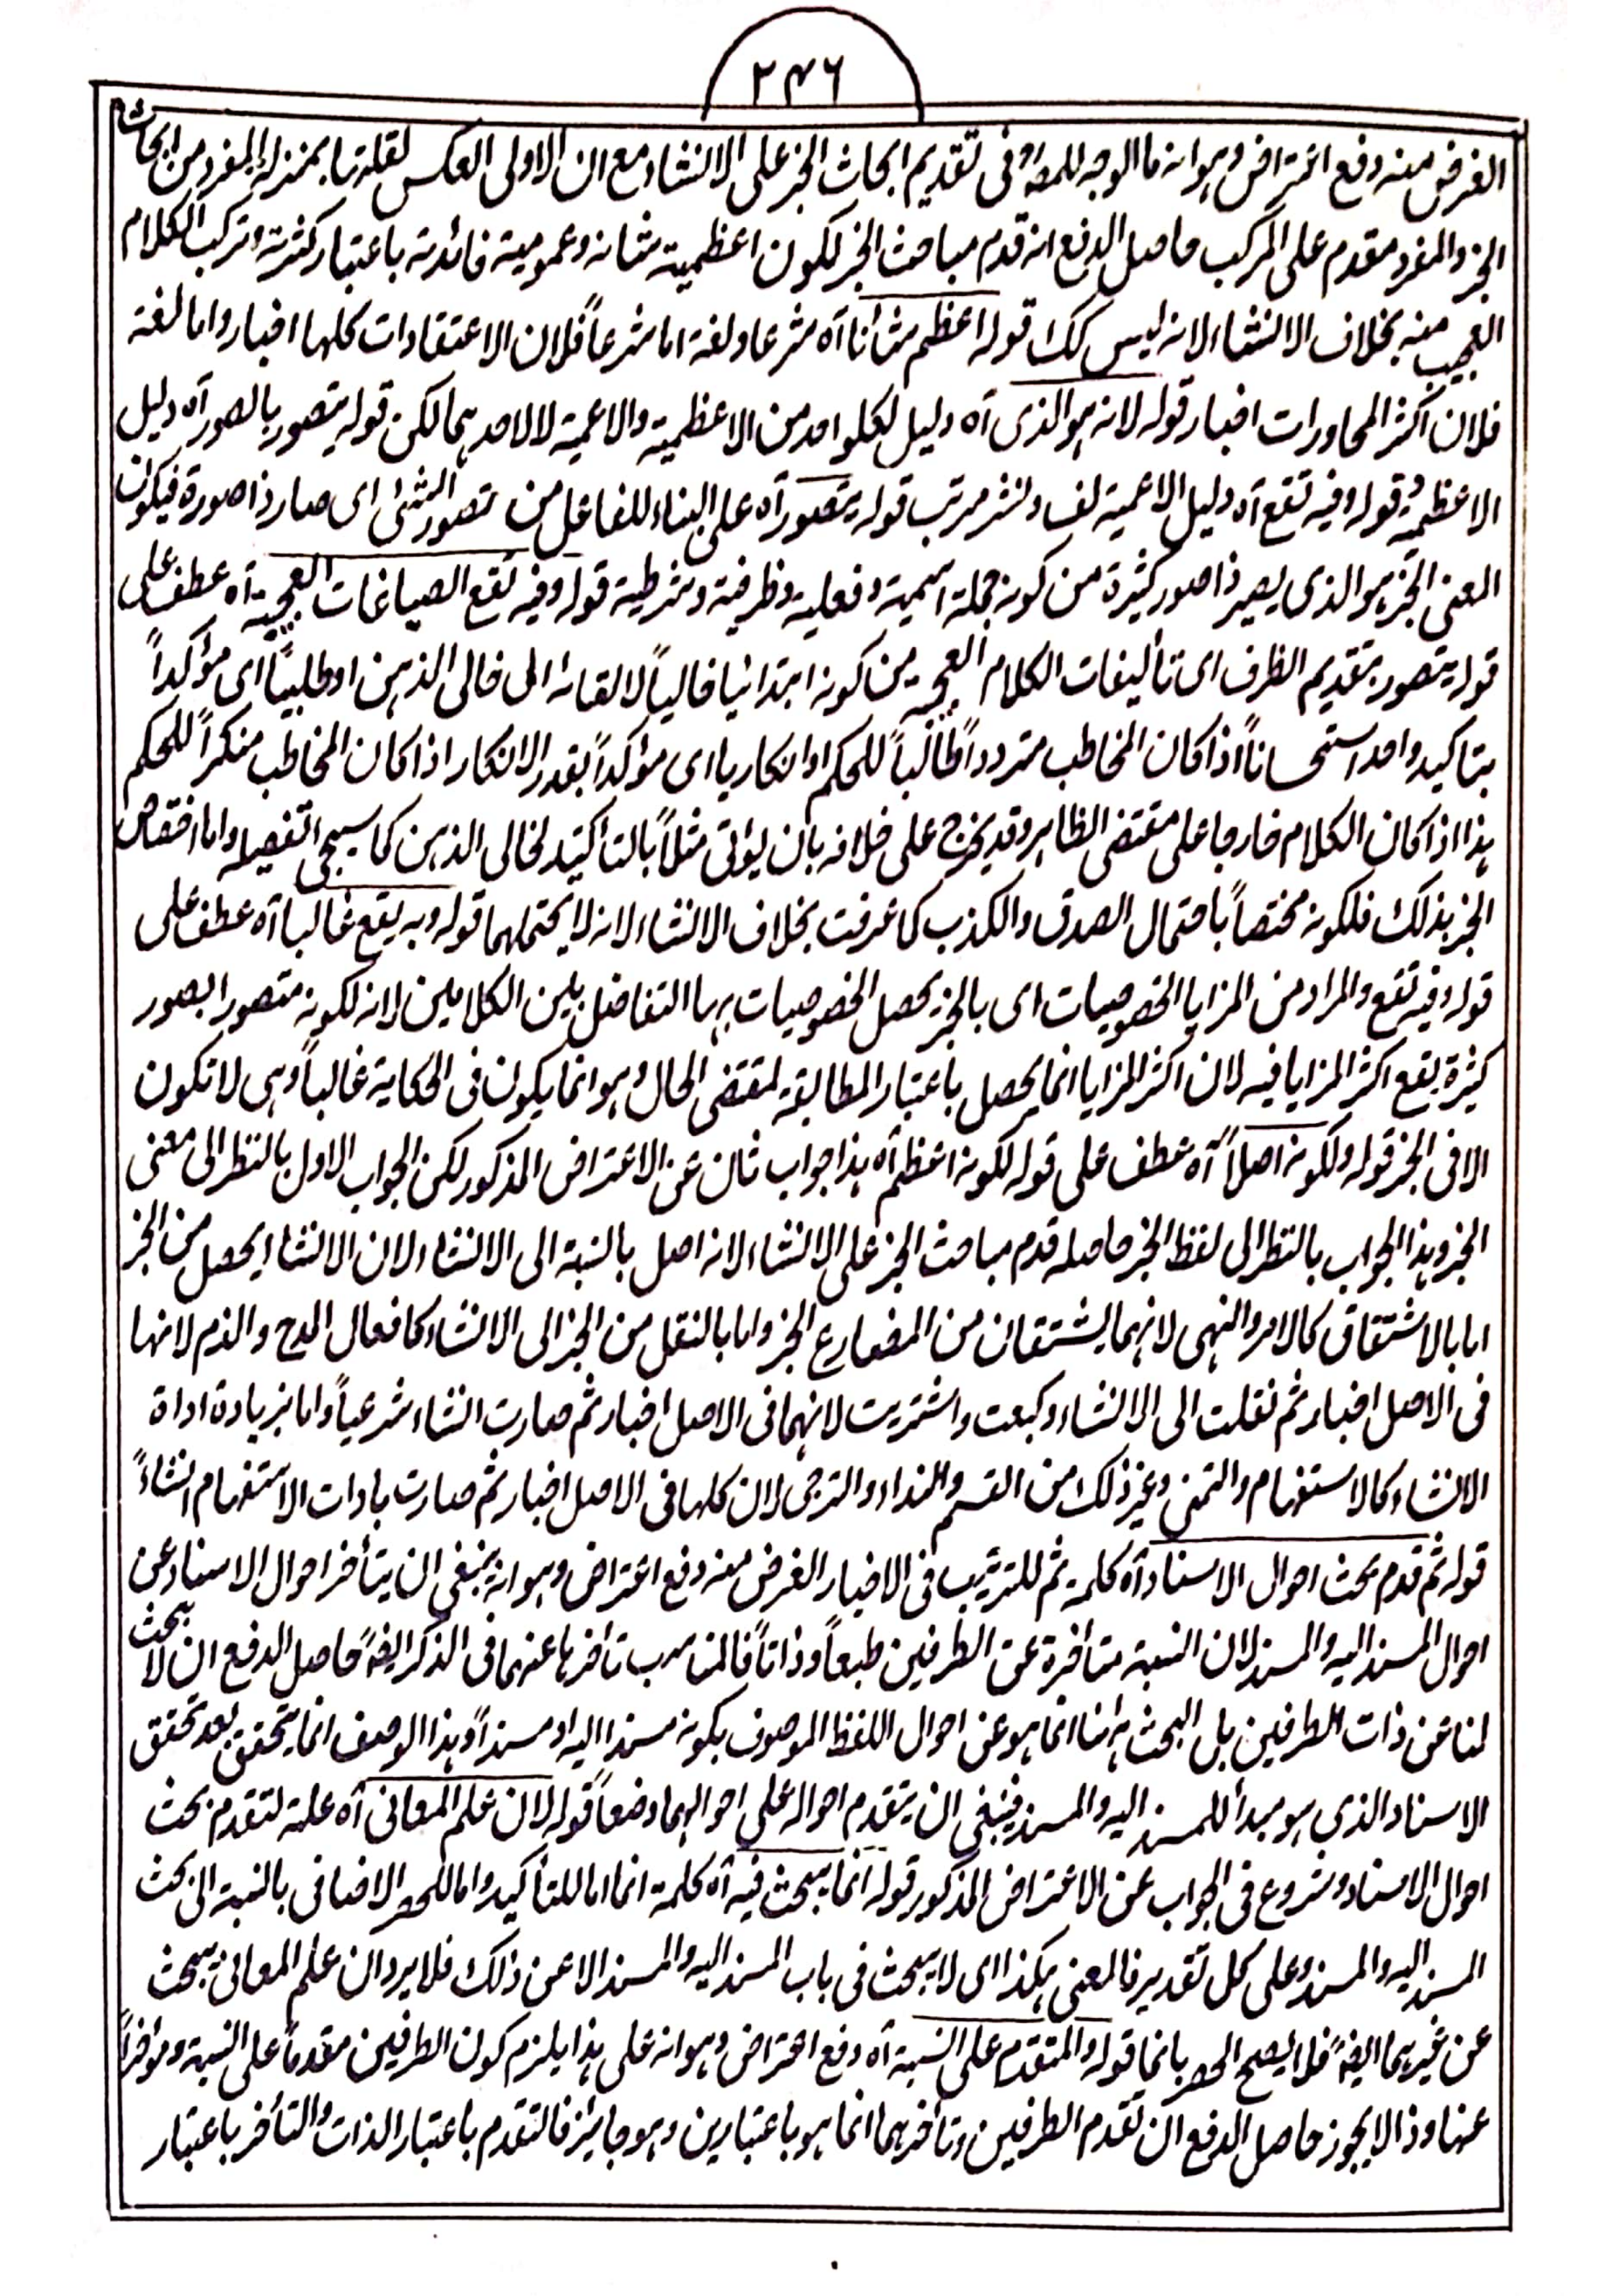 ٢٤٦
الغرض منه دفع اعتراض وهو انه ما الوجه للمصؒ فى تقديم ابحاث الخبر على الانشاء مع ان الاولى العكس لقلتها بمنزلة المفرد من ابحاث
الخبر والمفرد مقدم على المركب حاصل الدفع انه قدم مباحث الخبر لكون اعظمية شانه وعمومية فائدته باعتبار كثرته وتركب الكلام
العجيب منه بخلاف الانشاء لانه ليس كك قوله اعظم شأنا آه شرعا ولغة اما شرعاً فلان الاعتقادات كلها اخبار واما لغة
فلان اكثر المحاورات اخبار قوله لانه هو الذى آه دليل لكلواحد من الاعظمية والاعمية لا لاحدهما لكن قوله يتصور بالصور آه دليل
الاعظمية وقوله وفيه تقع آه دليل الاعمية لف ونشر مرتب قوله يتصور آه على البناء للفاعل من تصور الشئ اى صار ذا صورة فيكون
المعنى الخبر هو الذى يصير ذا صور كثيرة من كونه جملة اسمية وفعلية وظرفية وشرطية قوله وفيه تقع الصياغات العجيبة آه عطف على
قوله يتصور بتقديم الظرف اى تأليفات الكلام العجيبة من كونه ابتدائيا خالياً لالقائه الى خالى الذهن او طلبيا اى مؤكداً
بتاكيد واحد استحساناً اذا كان المخاطب متردداً طالباً للحكم او انكاريا اى مؤكداً بقدر الانكار اذا كان المخاطب منكراً للحكم
هذا اذا كان الكلام خارجا على مقتضى الظاهر وقد يخرج على خلافه بان يؤتى مثلاً بالتأكيد لخالى الذهن كما سيجى تفصيله واما اختصاص
الخبر بذلك فلكونه مختصاً باحتمال الصدق والكذب كما عرفت بخلاف الانشاء لانه لا يحتملهما قوله وبه يقع غالبا آه عطف على
قوله وفيه تقع والمراد من المزايا الخصوصيات اى بالخبر تحصل الخصوصيات بها التفاضل بين الكلامين لانه لكونه متصورا بصور
كثيرة يقع اكثر المزايا فيه لان اكثر المزايا انما يحصل باعتبار المطابقة لمقتضى الحال وهو انما يكون فى الحكاية غالباً وهى لا تكون
الا فى الخبر قوله ولكونه اصلاً آه عطف على قوله لكونه اعظم آه هذا جواب ثان عن الاعتراض المذكور لكن الجواب الاول بالنظر الى معنى
الخبر وهذا الجواب بالنظر الى لفظ الخبر حاصله قدم مباحث الخبر على الانشاء لانه اصل بالنسبة الى الانشاء لان الانشاء يحصل من الخبر
اما بالاشتقاق كالامر والنهى لانهما يشتقان من المضارع الخبر واما بالنقل من الخبر الى الانشاء كافعال المدح والذم لانها
فى الاصل اخبار ثم نقلت الى الانشاء وكبعت واشتريت لانهما فى الاصل اخبار ثم صارت انشاء شرعياً واما بزيادة اداة
الانشاء كالاستفهام والتمنى وغير ذلك من القسم والنداء والترجى لان كلها فى الاصل اخبار ثم صارت بادات الاستفهام انشاءً
قوله ثم قدم بحث احوال الاسناد آه كلمة ثم للترتيب فى الاخبار الغرض منه دفع اعتراض وهو انه ينبغى ان يتأخر احوال الاسناد عن
احوال المسند اليه والمسند لان النسبة متأخرة عن الطرفين طبعاً وذاتاً فالمناسب تأخرها عنهما فى الذكر ايضًا حاصل الدفع ان لا بحث
لنا عن ذات الطرفين بل البحث ههنا انما هو عن احوال اللفظ الموصوف بكونه مسندا اليه او مسنداً وهذا الوصف انما يتحقق بعد تحقق
الاسناد الذى هو مبدأ للمسند اليه والمسند فينبغى ان يتقدم احواله على احوالهما وضعاً قوله لان علم المعانى آه علة لتقدم بحث
احوال الاسناد وشروع فى الجواب عن الاعتراض المذكور قوله انما يبحث فيه آه كلمة انما اما للتأكيد واما للحصر الاضافى بالنسبة الى بحث
المسند اليه والمسند وعلى كل تقدير فالمعنى هكذا اى لا يبحث فى باب المسند اليه والمسند الا عن ذلك فلا يرد ان علم المعانى يبحث
عن غيرهما ايضًا فلا يصح الحصر بانما قوله والمتقدم على النسبة آه دفع اعتراض وهو انه على هذا يلزم كون الطرفين مقدماً على النسبة وموخراً
عنها وذا لا يجوز حاصل الدفع ان تقدم الطرفين وتأخرهما انما هو باعتبارين وهو جائز فالتقدم باعتبار الذات والتأخر باعتبار